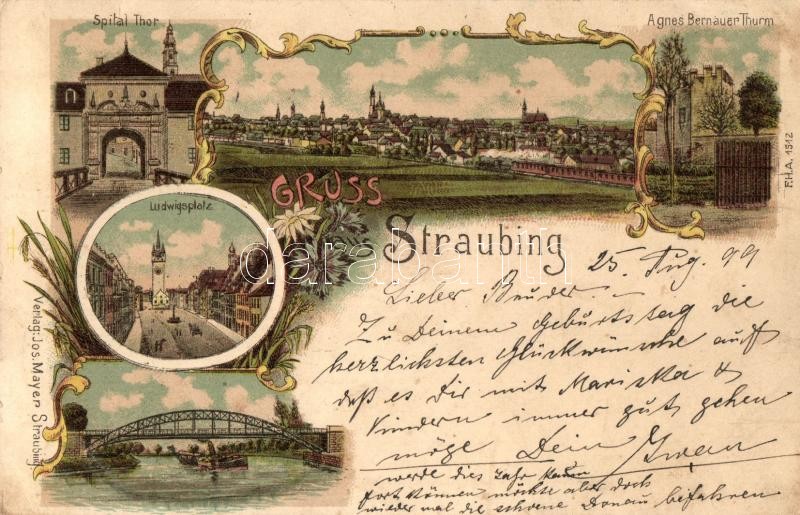 Spital Thor
Agnes Bernauer Thurm
F.H.A. 1512
Ludwigsplatz
GRUSS
Straubing
25. Aug. 99
Lieber Bruder. –
Zu Deinem Geburtstag die
herzlichsten Glückwünsche auch
daß es Dir mit Mariska &
Kindern immer gut gehen
möge Dein Iwan
werde dies Jahr kaum
fort können möchte aber doch
wieder mal die schoene Donau befahren
Verlag: Jos. Mayer, Straubing
darabanth.com